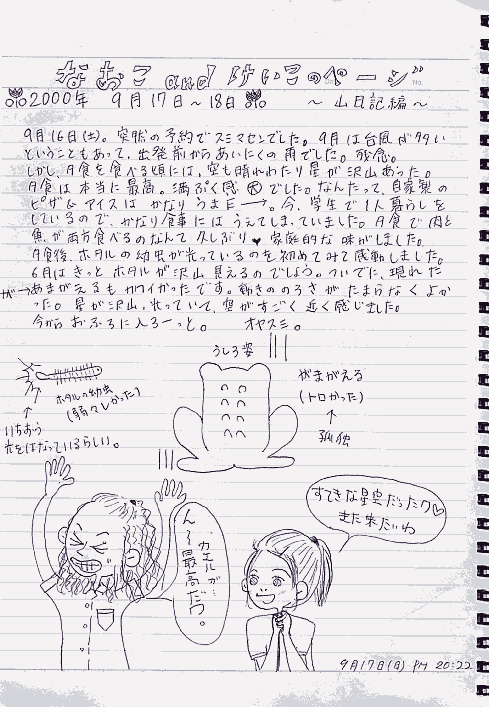 なおこ and けいこのページ
2000年 9月17日〜18日 〜山日記編〜
9月16日(土)。突然の予約でスミマセンでした。9月は台風が多い
ということもあって、出発前からあいにくの雨でした。残念。
しかし、夕食を食べる頃には、空も晴れわたり星が沢山あった。
夕食は本当に最高。満ぷく感大でした。なんたって、自家製の
ピザ&アイスはかなりうまE→。今、学生で1人暮らしを
しているので、かなり食事にはうえてしまっていました。夕食で肉と
魚が両方食べるのなんて久しぶり♥家庭的な味がしました。
夕食後、ホタルの幼虫が光っているのを初めてみて感動しました。
6月はきっとホタルが沢山見えるのでしょう。ついでに、現れた
がまがえるもカワイかったです。動きののろさがたまらなくよか
った。星が沢山、光っていて、空がすごく近く感じました。
今からおふろに入るーっと。 オヤスミ。
うしろ姿
ホタルの幼虫
(弱々しかった)
いちおう
光をはなっているらしい。
がまがえる
(トロかった)
孤独
カエルが…
ん〜最高だワ。
すてきな星空だったワ♡
また来たいわ
9月17日(日) PM 20:22